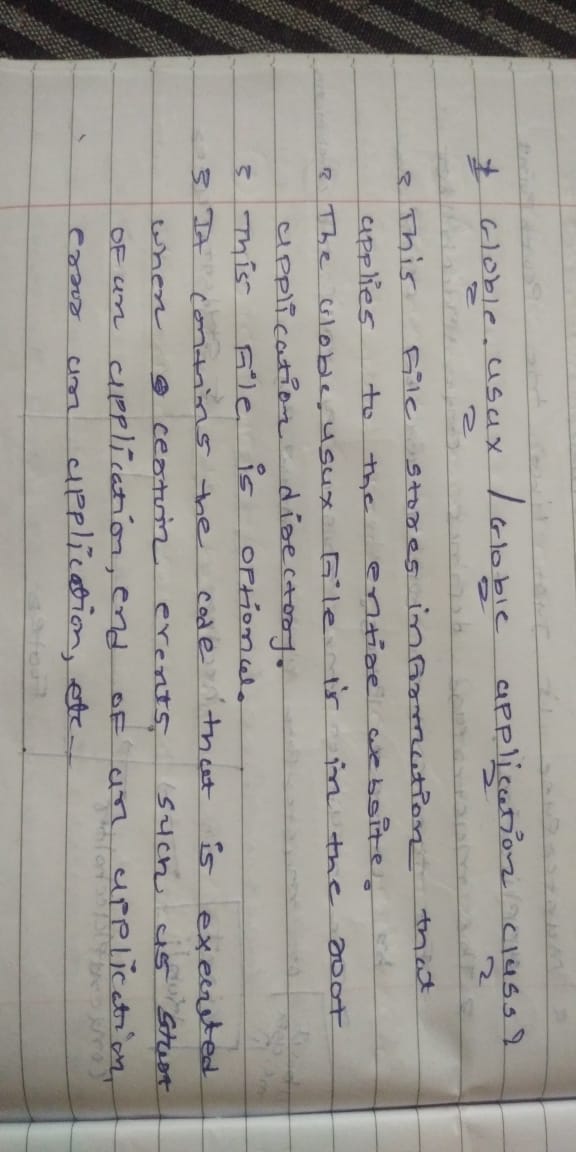 * Globle.asax / Globle application class?
→ This File stores information that
applies to the entire website.
→ The Globle.asax File is in the root
application directory.
→ This File is optional.
→ It contins the code that is executed
when certain events, such as start
of an application, end of an application,
error an application, etc—